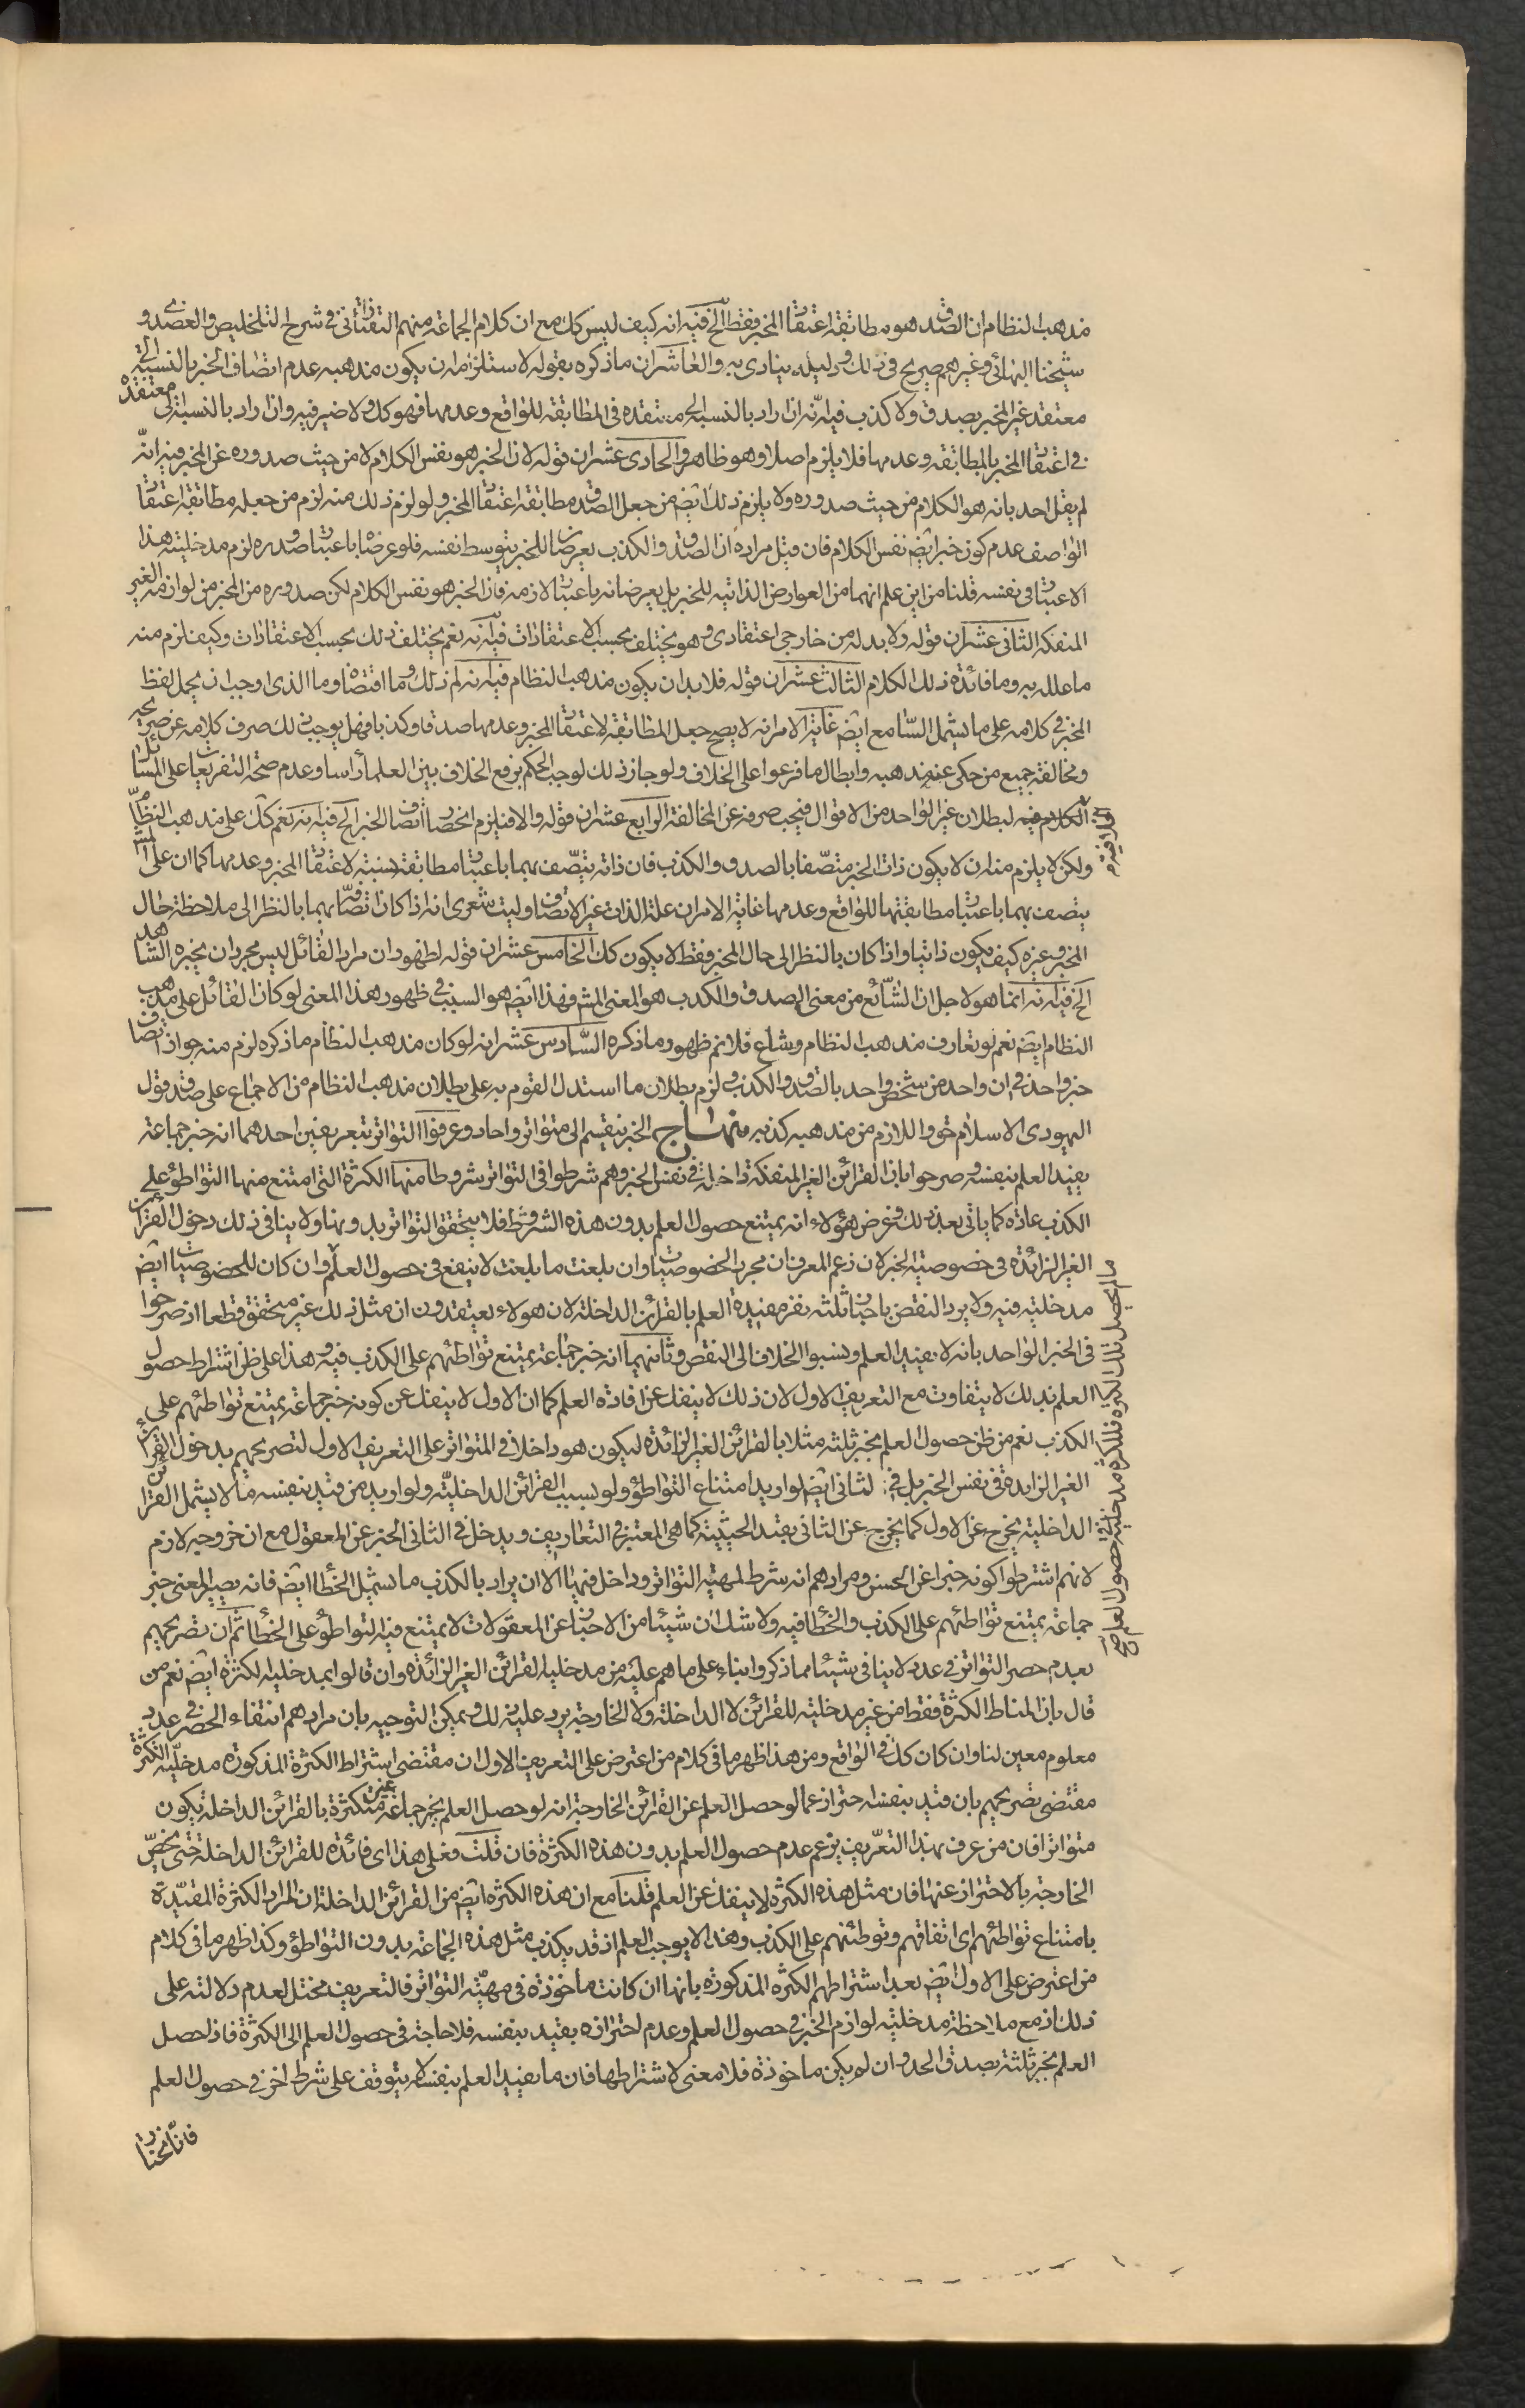 مذهب النظام ان الصدق هو مطابقة اعتقاد المخبر فقط الخ فيه انه كيف ليس كك مع ان كلام الجماعة منهم التفتازانى فى شرح التلخيص والعضدى و
شيخنا البهائى وغيرهم صريح فى ذلك ودليله ينادى به والعاشر ان ما ذكره بقوله لاستلزامه ان يكون مذهبه عدم اتصاف الخبر بالنسبة الى
معتقد غير المخبر بصدق ولا كذب فيه انه ان اراد بالنسبة الى معتقده فى المطابقة للواقع وعدمها فهو كك ولا ضير فيه وان اراد بالنسبة الى معتقده
فى اعتقاد المخبر بالمطابقة وعدمها فلا يلزم اصلا وهو ظاهر والحادى عشر ان قوله لان الخبر هو نفس الكلام لا من حيث صدوره عن المخبر فيه انه
لم يقل احد بانه هو الكلام من حيث صدوره ولا يلزم ذلك ايضا من جعل الصدق مطابقة اعتقاد المخبر ولو لزم ذلك منه لزم من جعله مطابقة اعتقاد
الواصف عدم كون خبرا ايضا نفس الكلام فان قيل مراده ان الصدق والكذب يعرضان للخبر بتوسط نفسه فلو عرضاه باعتبار صدوره لزم مدخلية هذا
الاعتبار فى نفسه قلنا من اين علم انهما من العوارض الذاتية للخبر بل يعرضانه باعتبار لازمه فان الخبر هو نفس الكلام لكن صدوره من المخبر من لوازمه الغير
المنفكة الثانى عشر ان قوله ولا بد له من خارجى اعتقادى وهو يختلف بحسب الاعتقادات فيه انه نعم يختلف ذلك بحسب الاعتقادات وكيف لزم منه
ما علله به وما فائدة ذلك الكلام الثالث عشر ان قوله فلا بد ان يكون مذهب النظام فيه انه لم ذلك وما اقتضاه وما الذى اوجب ان يحمل لفظ
المخبر فى كلامه على ما يشمل السامع ايضا غاية الامر انه لا يصح جعل المطابقة لاعتقاد المخبر وعدمها صدقا وكذبا فهل يوجب ذلك صرف كلامه عن صريحه
ومخالفة جميع من حكى عنه مذهبه وابطال ما فرعوا على الخلاف ولو جاز ذلك لوجب الحكم برفع الخلاف بين العلماء رأسا وعدم صحة التفريعات على المسائل
الكلام فيه لبطلان غير الواحد من الاقوال فيجب صرفه عن المخالفة الرابع عشر ان قوله والا فيلزم انحصار اتصاف الخبر الخ فيه انه نعم كك على مذهب النظام
ولكن لا يلزم منه ان لا يكون ذات الخبر متصفا بالصدق والكذب فان ذاته يتصف بهما باعتبار مطابقة نسبته لاعتقاد المخبر وعدمها كما ان على المش
يتصف بهما باعتبار مطابقتها للواقع وعدمها غاية الامر ان علة الذات غير الاتصاف وليت شعرى انه اذا كان اتصافه بهما بالنظر الى ملاحظة حال
المخبر وغيره كيف يكون ذاتيا واذا كان بالنظر الى حال المخبر فقط لا يكون كك الخامس عشر ان قوله لظهور ان مراد القائل ليس مجرد ان يخبره الشاهد
الخ فيه انه انما هو لاجل ان الشائع من معنى الصدق والكذب هو المعنى المش فهذا ايضا هو السبب فى ظهور هذا المعنى لو كان القائل على مذهب
النظام ايضا نعم لو تعارف مذهب النظام وشاع فلا نم ظهور ما ذكره السادس عشر انه لو كان مذهب النظام ما ذكره لزم منه جواز اتصاف
خبر واحد فى ان واحد من شخص واحد بالصدق والكذب ولزم بطلان ما استدل القوم به على بطلان مذهب النظام من الاجماع على صدق قول
اليهودى الاسلام حق واللازم من مذهبه كذبه منهاج الخبر ينقسم الى متواتر واحاد وعرفوا التواتر بتعريفين احدهما انه خبر جماعة
يفيد العلم بنفسه وصرحوا بان القرائن الغير المنفكة داخلة فى نفس الخبر وهم شرطوا فى التواتر شروطا منها الكثرة التى امتنع منها التواطؤ على
الكذب عادة كما ياتى بعد ذلك وغرض هؤلاء انه يمتنع حصول العلم بدون هذه الشروط فلا يتحقق التواتر بدونها ولا ينافى ذلك دخول القرائن
الغير الزائدة فى خصوصية الخبر لان زعم المعرف ان مجرد الخصوصيات وان بلغت ما بلغت لا ينفع فى حصول العلم وان كان للخصوصيات ايضا
مدخلية فيه ولا يرد النقض باخبار ثلثة نفر مفيدة العلم بالقرائن الداخلة لان هولاء يعتقدون ان مثل ذلك غير متحقق قطعا اذ صرحوا
فى الخبر الواحد بانه لا يفيد العلم ونسبوا الخلاف الى النقض وثانيهما انه خبر جماعة يمتنع تواطئهم على الكذب فيه وهذا على ظن اشتراط حصول
العلم بذلك لا يتفاوت مع التعريف الاول لان ذلك لا ينفك عن افادة العلم كما ان الاول لا ينفك عن كونه خبر جماعة يمتنع تواطئهم على
الكذب نعم من ظن حصول العلم بخبر ثلثة مثلا بالقرائن الغير الزائدة ليكون هو داخلا فى المتواتر على التعريف الاول لتصريحهم بدخول القرائن
الغير الزايدة فى نفس الخبر بل فى الثانى ايضا لو اريد امتناع التواطؤ ولو بسبب القرائن الداخلية ولو اريد من قيد بنفسه ما لا يشمل القرائن
الداخلية يخرج عن الاول كما يخرج عن الثانى بقيد الحيثية كما هى المعتبر فى التعاريف ويدخل فى الثانى الخبر عن المعقول مع ان خروجه لازم
لانهم اشترطوا كونه خبرا عن الحسن ومرادهم انه شرط لمهية التواتر وداخل فيها الا ان يراد بالكذب ما يشمل الخطأ ايضا فانه يصير المعنى خبر
جماعة يمتنع تواطئهم على الكذب والخطأ فيه ولا شك ان شيئا من الاخبار عن المعقولات لا يمتنع فيه التواطؤ على الخطأ ثم ان تصريحهم
بعدم حصر التواتر فى عدد لا ينافى شيئا مما ذكروا بناء على ما هم عليه من مدخلية القرائن الغير الزائدة وان قالوا بمدخلية الكثرة ايضا نعم من
قال بان المناط الكثرة فقط من غير مدخلية للقرائن لا الداخلة ولا الخارجة يرد عليه ذلك ويمكن التوجيه بان مرادهم انتفاء الحصر فى عدد
معلوم معين لنا وان كان كك فى الواقع ومن هذا ظهر ما فى كلام من اعترض على التعريف الاول ان مقتضى اشتراط الكثرة المذكورة مدخلية الكثرة
مقتضى تصريحهم بان قيد بنفسه احتراز عما لو حصل العلم عن القرائن الخارجة انه لو حصل العلم بخبر جماعة غير متكثرة بالقرائن الداخلة يكون
متواترا فان من عرف بهذا التعريف يزعم عدم حصول العلم بدون هذه الكثرة فان قلت فعلى هذا اى فائدة للقرائن الداخلة حتى يخص
الخارجة بالاحتراز عنها فان مثل هذه الكثرة لا ينفك عن العلم قلنا مع ان هذه الكثرة ايضا من القرائن الداخلة ان المراد الكثرة المقيدة
بامتناع تواطئهم اى اتفاقهم وتوطئهم على الكذب وهذا لا يوجب العلم اذ قد يكذب مثل هذه الجماعة بدون التواطؤ وكذا ظهر ما فى كلام
من اعترض على الاول ايضا بعد اشتراطهم الكثرة المذكورة بانها ان كانت ماخوذة فى مهية التواتر فالتعريف مختل لعدم دلالته على
ذلك اذ مع ملاحظة مدخلية لوازم الخبر فى حصول العلم وعدم احترازه بقيد بنفسه فلا حاجة فى حصول العلم الى الكثرة فاذا حصل
العلم بخبر ثلثة بصدق الحد وان لم يكن ماخوذة فلا معنى لاشتراطها فان ما يفيد العلم بنفسه لا يتوقف على شرط اخر فى حصول العلم
ما لم يحصل تلك الكثرة فللكثرة مدخلية فى حصول العلم
فانا نختار